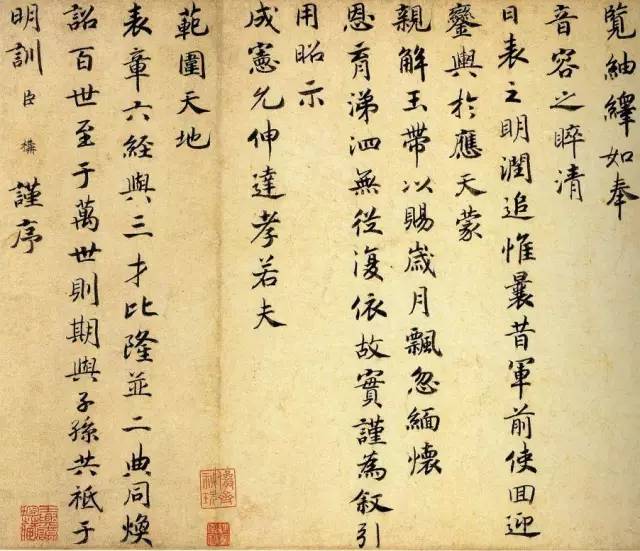 覽紬繹如奉
音容之睟清
日表之明潤追惟曩昔軍前使囬迎
鑾輿於應天蒙
親解玉帶以賜歲月飄忽緬懷
恩育涕泗無從復依故實謹為叙引
用昭示
成憲允伸達孝若夫
範圍天地
表章六經與三才比隆並二典同煥
詔百世至于萬世則期與子孫共祗于
明訓臣構謹序